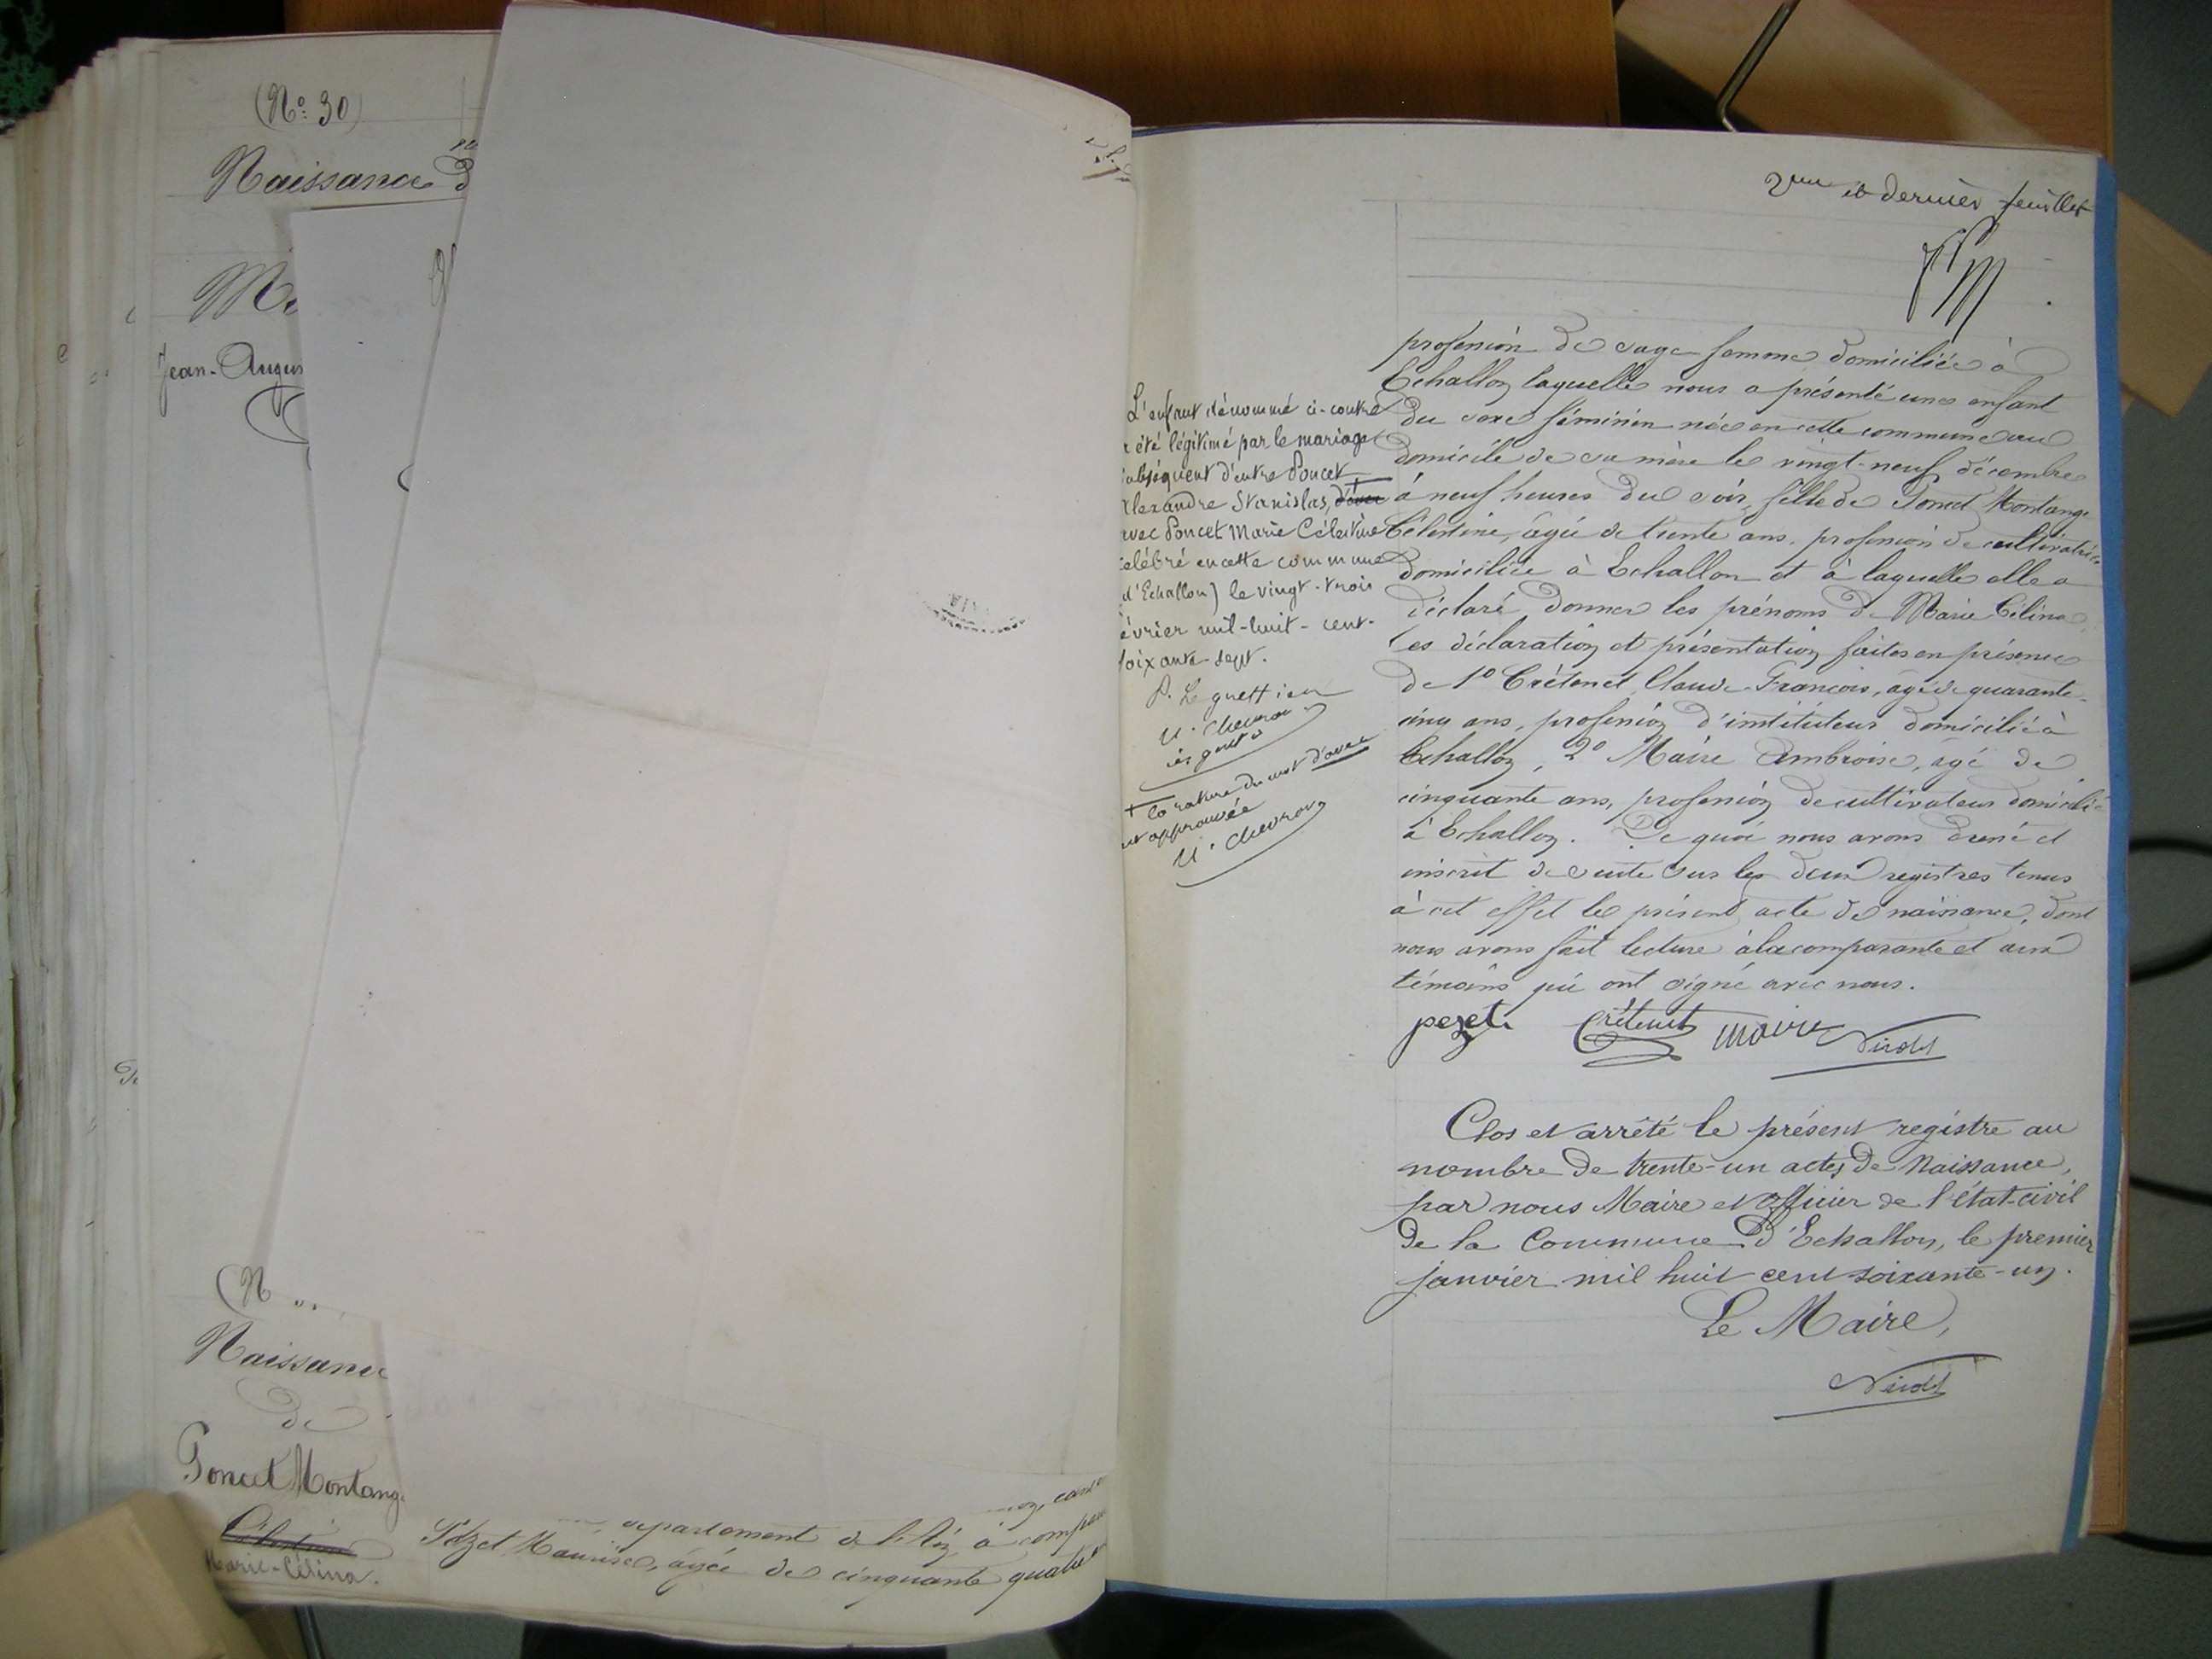 (N° 30)
Naissance d
Jean-Augus
(N
Naissance
de
Poncet Montange
Célestine
Marie-Célina.
département de l'Ain, a comparu
Pozet Maurise, âgée de cinquante quatre
2me et dernier feuillet
profession de sage femme domiciliée à
Echallon laquelle nous a présenté une enfant
du sexe féminin née en cette commune au
domicile de sa mère le vingt-neuf décembre
à neuf heures du soir, fille de Poncet Montange
Célestine, âgée de trente ans, profession de cultivatrice
domiciliée à Echallon et à laquelle elle a
déclaré donner les prénoms de Marie Célina
Ces déclaration et présentation faites en présence
de 1° Crétenet Claude-François, âgé de quarante-
cinq ans, profession d'instituteur domicilié à
Echallon, 2° Maire Ambroise, âgé de
cinquante ans, profession de cultivateur domicilié
à Echallon. De quoi nous avons dressé et
inscrit de suite sur les deux registres tenus
à cet effet le présent acte de naissance, dont
nous avons fait lecture à la comparante et aux
témoins qui ont signé avec nous.
pozet Crétenet Maire Nicolet
L'enfant dénommé ci-contre
a été légitimé par le mariage
subséquent d'entre Poncet
Alexandre Stanislas, d'avec
avec Poncet Marie Célestine
célébré en cette commune
(d'Echallon) le vingt-trois
février mil-huit-cent-
soixante-sept.
P. Le greffier
U. Chevron
+ la rature du mot d'avec
est approuvée
U. Chevron
Clos et arrêté le présent registre au
nombre de trente-un actes de Naissance,
par nous Maire et officier de l'état-civil
de la Commune d'Echallon, le premier
janvier mil huit cent soixante-un.
Le Maire,
Nicolet